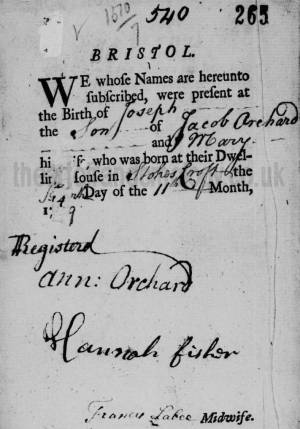 1670
7
540
265
BRISTOL.
WE whose Names are hereunto
subscribed, were present at
the Birth of Joseph
the Son of Jacob Orchard
and Mary
hi f, who was born at their Dwel-
lin House in Stokes Croft the
Day of the 11th Month,
Registerd
Ann: Orchard
Hannah Fisher
Midwife.